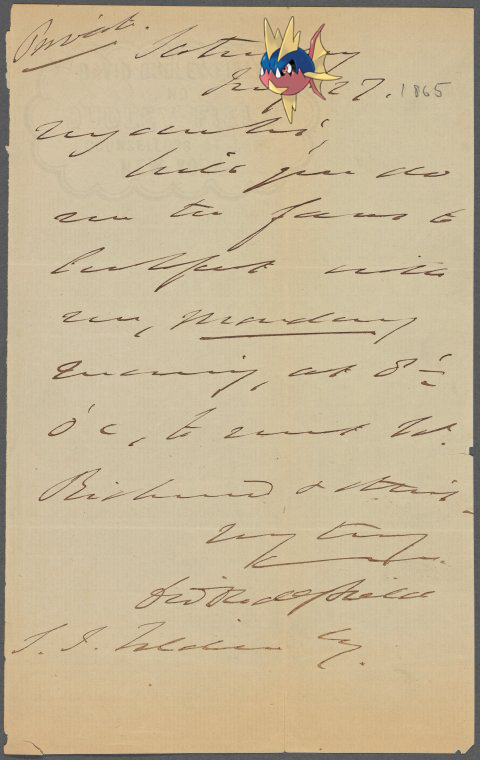 Private.
Saturday
27. 1865
My dear Sir,
Will you do
me the favor to
breakfast with
me, Monday
morning, at 8 1/2
o'c, to meet Mr.
Richmond & others.
Very truly
S. J. Tilden Esq.